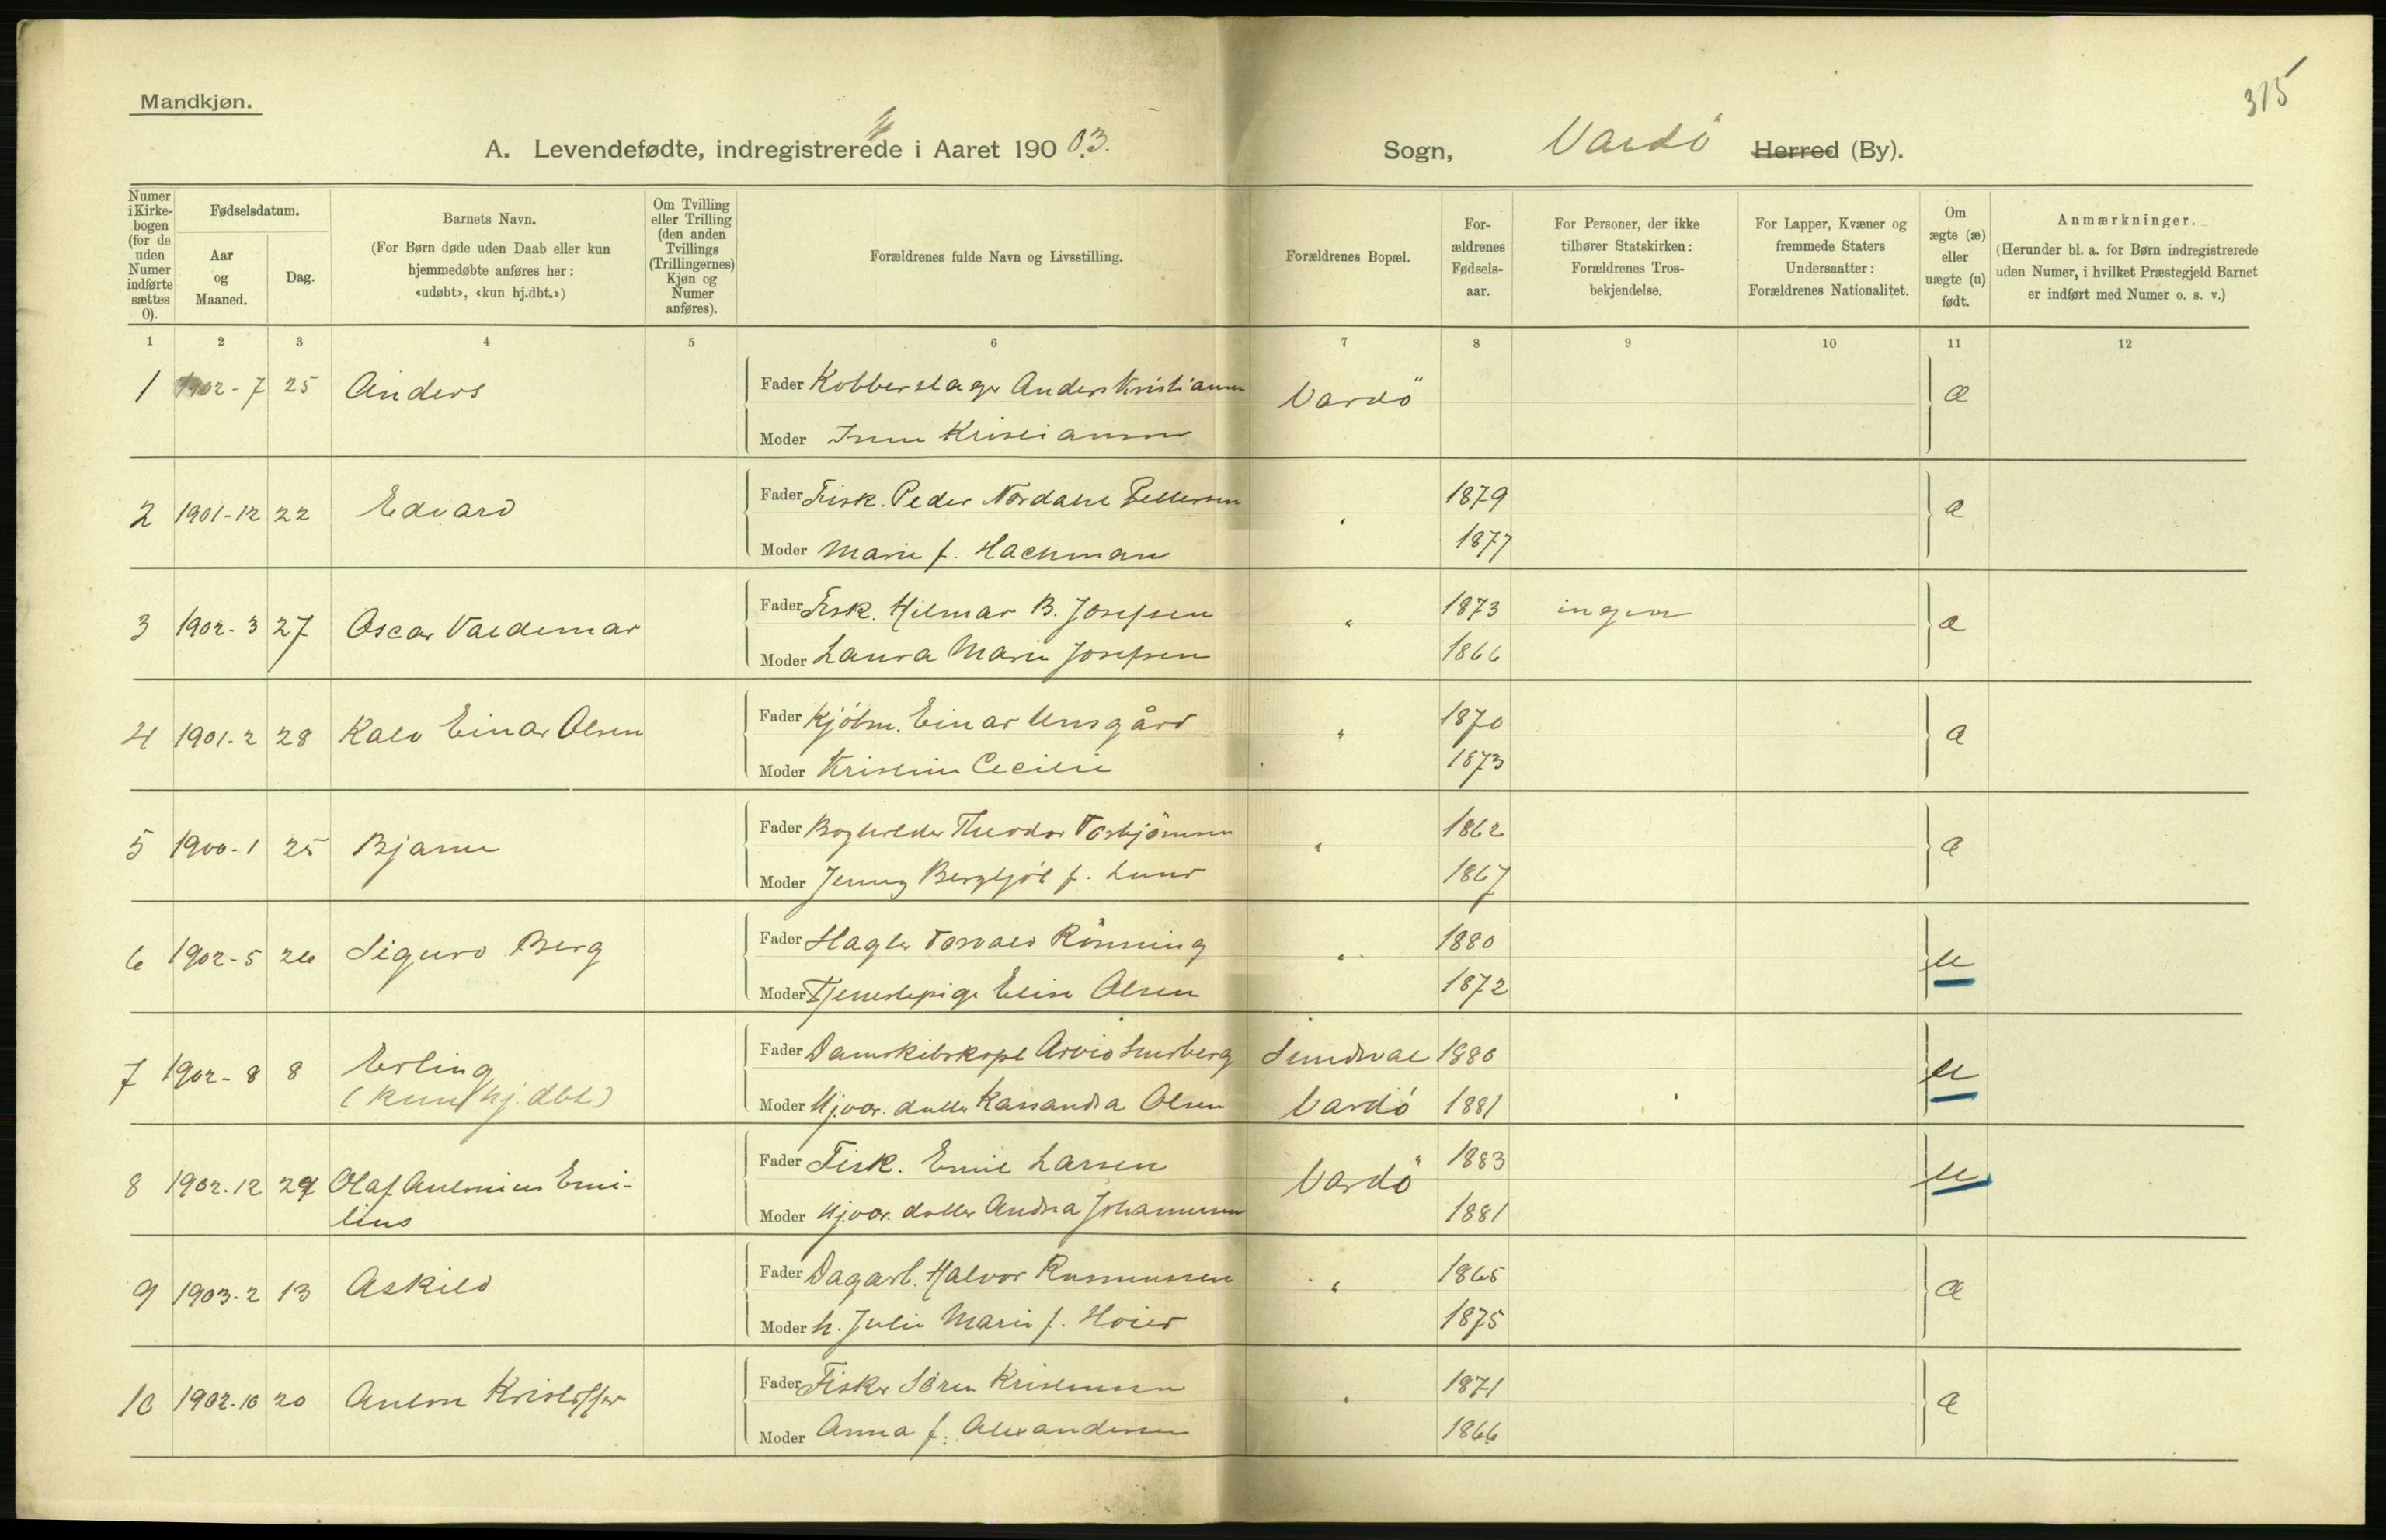 315
Mandkjøn.
A. Levendefødte, indregistrerede i Aaret 190 03. Sogn, Vardö Herred (By).
Numer i Kirkebogen (for de uden Numer indførte sættes 0).
Fødselsdatum.
Aar og Maaned.
Dag.
Barnets Navn.
(For Børn døde uden Daab eller kun hjemmedøbte anføres her: «udøbt», «kun hj.dbt.»)
Om Tvilling eller Trilling (den anden Tvillings (Trillingernes) Kjøn og Numer anføres).
Forældrenes fulde Navn og Livsstilling.
Forældrenes Bopæl.
Forældrenes Fødselsaar.
For Personer, der ikke tilhører Statskirken: Forældrenes Trosbekjendelse.
For Lapper, Kvæner og fremmede Staters Undersaatter: Forældrenes Nationalitet.
Om ægte (æ) eller uægte (u) født.
Anmærkninger.
(Herunder bl. a. for Børn indregistrerede uden Numer, i hvilket Præstegjeld Barnet er indført med Numer o. s. v.)
1 2 3 4 5 6 7 8 9 10 11 12
1 1902-7 25 Anders Fader Kobberslager Anders Kristiansen Vardö æ
Moder Kristiansen
2 1901-12 22 Edvard Fader Fisk. Peder Nordahl Pettersen " 1879 æ
Moder Marie f. Hackman 1877
3 1902-3 27 Oscar Valdemar Fader Fisk. Hilmar B. Josefsen " 1873 ingen æ
Moder Laura Marie Josefsen 1866
4 1901-2 28 Karl Einar Olsen Fader Kjøbm. Einar " 1870 æ
Moder Kristine Cecilie 1873
5 1900-1 25 Bjarne Fader Bogholder Theodor Torbjörnsen " 1862 æ
Moder Jenny Bergljót f. Lund 1867
6 1902-5 26 Sigurd Berg Fader Torvald Rönning " 1880 u
Moder Tjenestepige Elise Olsen 1872
7 1902-8 8 Erling Fader Damskibskapt Arvid Sundsval 1880 u
(kun hj. dbt) Moder Hjvær. datter Kassandra Olsen Vardö 1881
8 1902-12 29 Olaf Antonius Emi- Fader Fisk. Emil Larsen Vardö 1883 u
lius Moder Hjvær. datter Andrea Johannesen 1881
9 1903-2 13 Askild Fader Dagarb. Halvor Rasmussen " 1865 æ
Moder h. Julie Marie f. Hoier 1875
10 1902-10 20 Anton Kristoffer Fader Fisker Sören Kristensen " 1871 æ
Moder Anna f. Alexandersen 1866